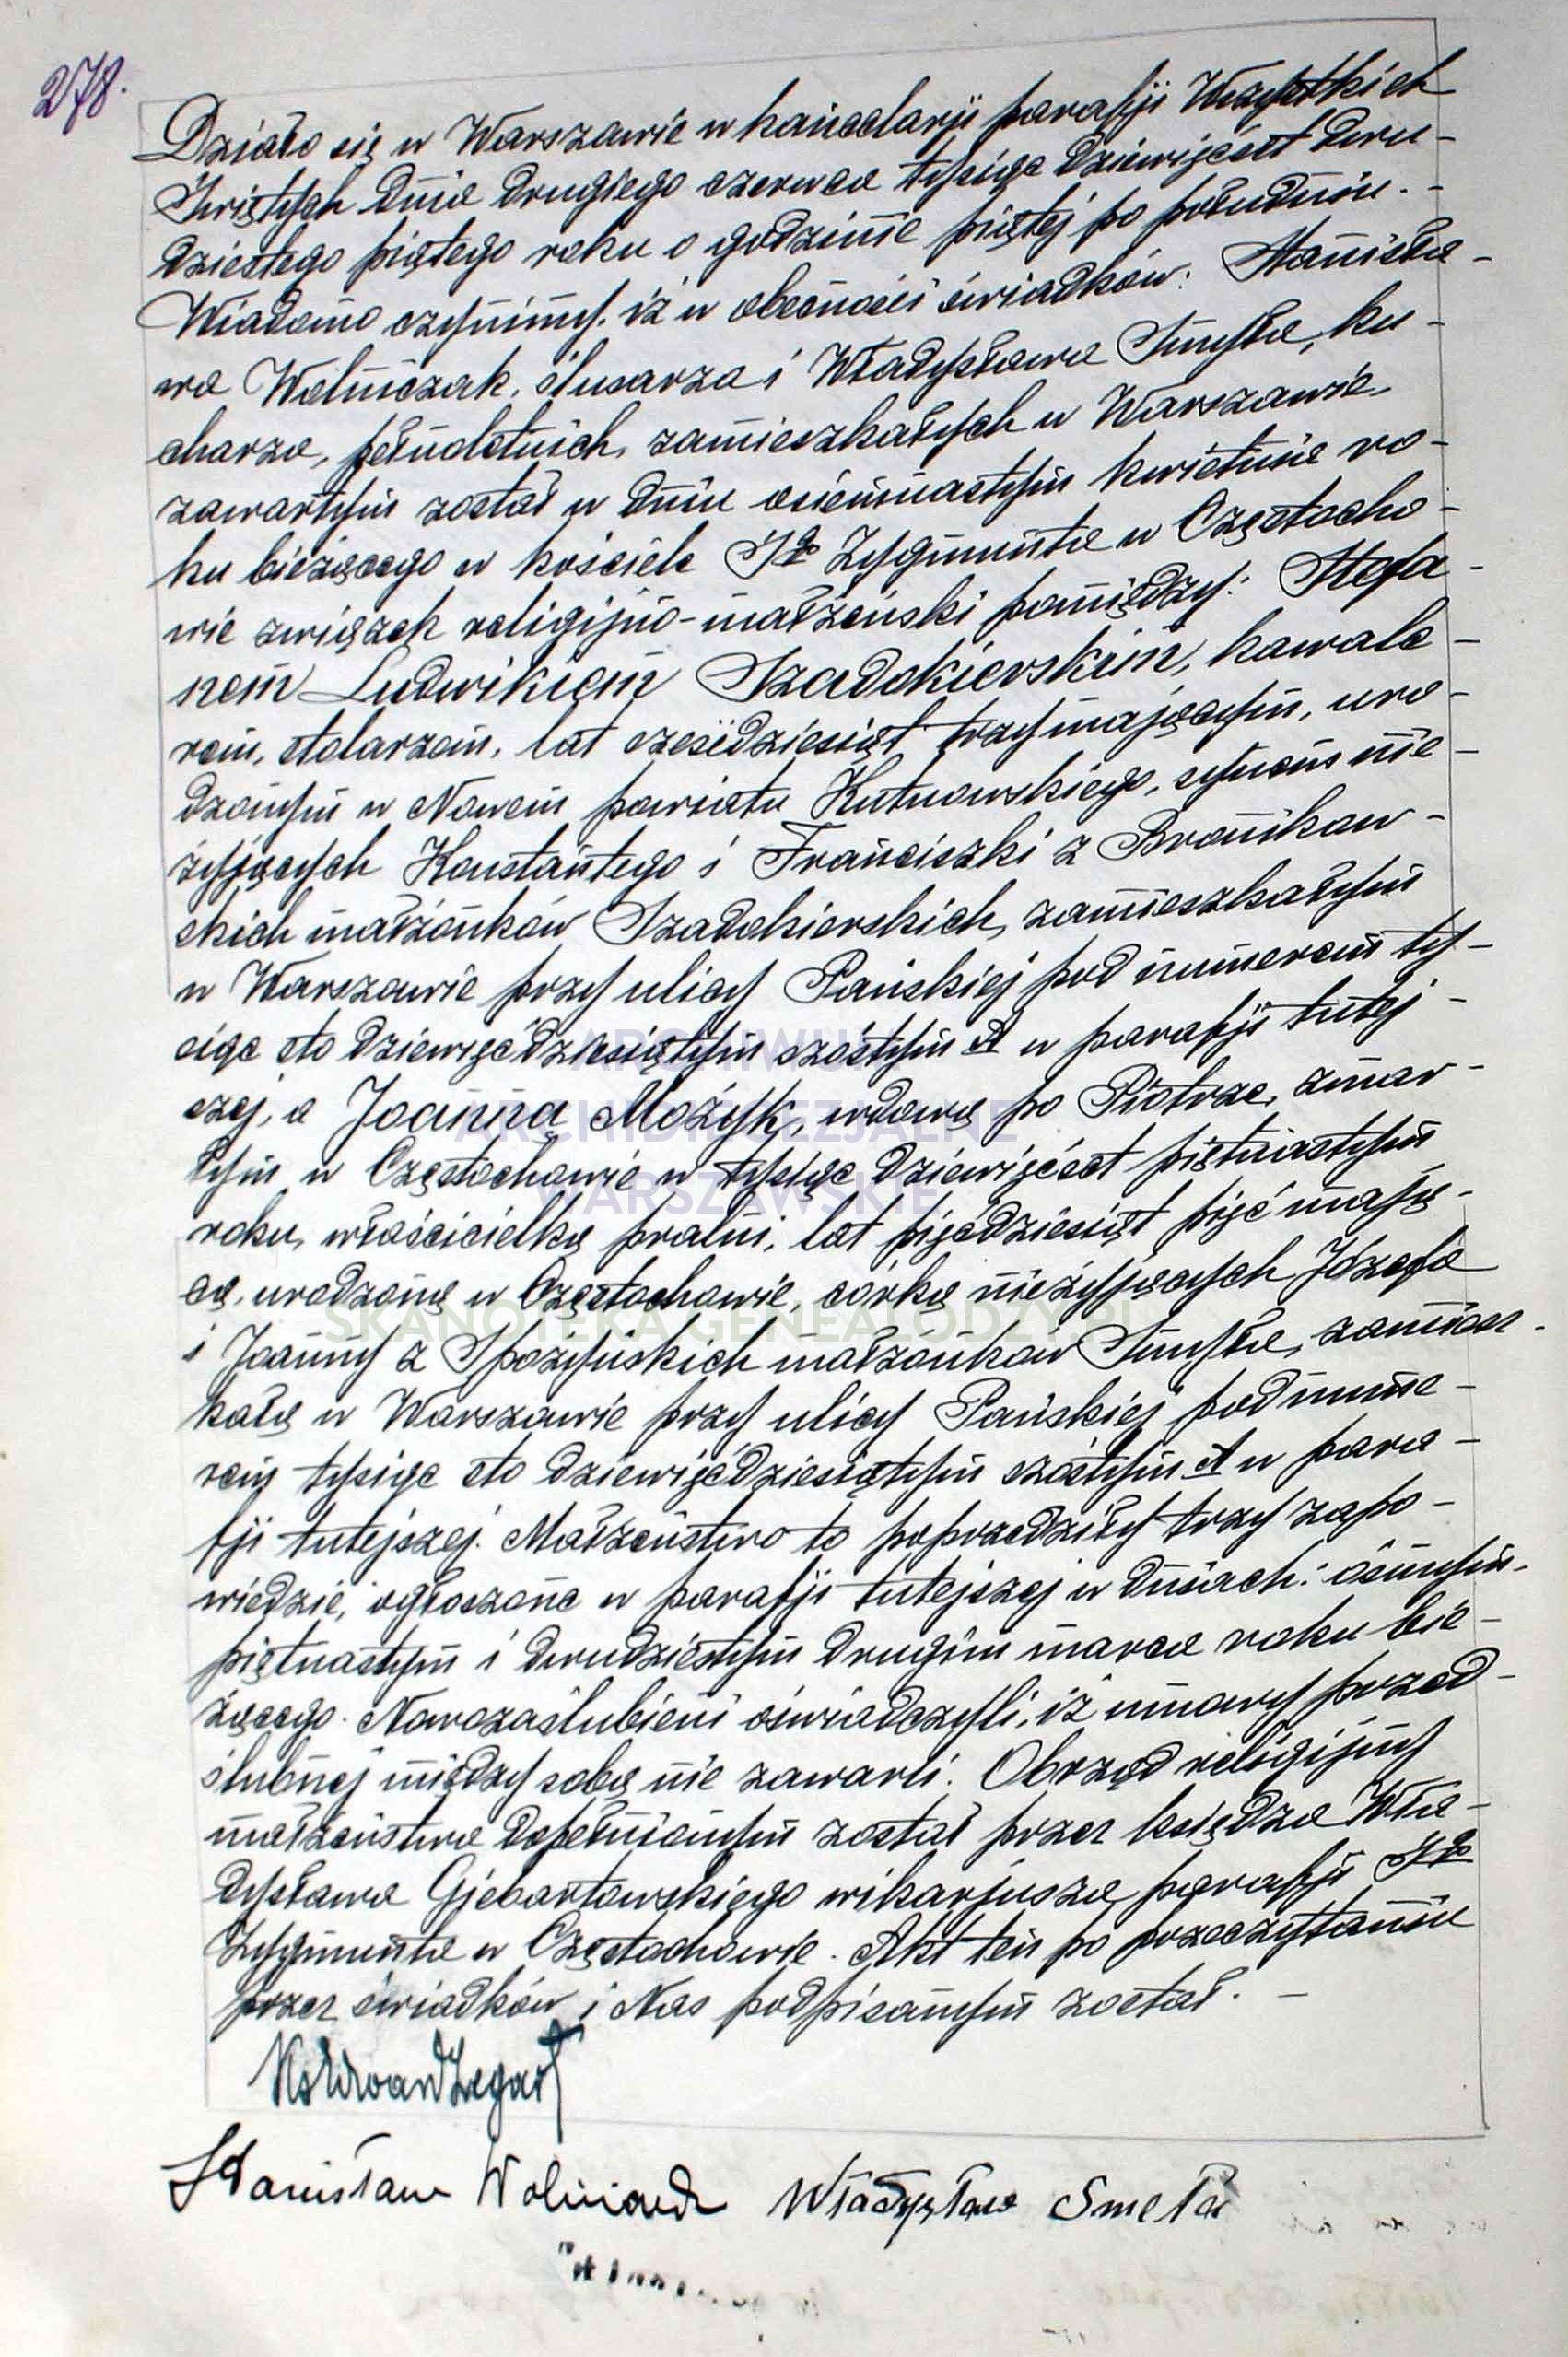 278.
Działo się w Warszawie w kancelarji parafji Wszystkich
Świętych dnia drugiego czerwca tysiąc dziewięćset dwu-
dziestego piątego roku o godzinie piątej po południu. -
Wiadomo czynimy, iż w obecności świadków: Stanisła-
wa Wolniczak, ślusarza i Władysława Smyła, ku-
charza, pełnoletnich, zamieszkałych w Warszawie,
zawartym został w dniu osiemnastym kwietnia ro-
ku bieżącego w kościele Sgo Zygmunta w Częstocho-
wie związek religijno-małżeński pomiędzy: Stefa-
nem Ludwikiem Szadokierskim, kawale-
rem, stolarzem, lat sześćdziesiąt trzy mającym, uro-
dzonym w Nowem powiatu Kutnowskiego, synem nie-
żyjących Konstantego i Franciszki z Bronikow-
skich małżonków Szadokierskich, zamieszkałym
w Warszawie przy ulicy Pańskiej pod numerem ty-
siąc sto dziewięćdziesiątym szóstym A w parafji tutej-
szej, a Joanną Możyk, wdową po Piotrze, zmar-
łym w Częstochowie w tysiąc dziewięćset piętnastym
roku, właścicielką pralni, lat pięćdziesiąt pięć mają-
cą, urodzoną w Częstochowie, córką nieżyjących Józefa
i Joanny z małżonków Smyła, zamiesz-
kałą w Warszawie przy ulicy Pańskiej pod nume-
rem tysiąc sto dziewięćdziesiątym szóstym A w para-
fji tutejszej. Małżeństwo to poprzedziły trzy zapo-
wiedzie, ogłoszone w parafji tutejszej w dniach: ósmym,
piętnastym i dwudziestym drugim marca roku bie-
żącego. Nowozaślubieni oświadczyli, iż umowy przed-
ślubnej między sobą nie zawarli. Obrząd religijny
małżeństwa dopełnionym został przez księdza Wła-
dysława Giebartowskiego wikarjusza parafji Sgo
Zygmunta w Częstochowie. Akt ten po przeczytaniu
przez świadków i Nas podpisanym został. -
Stanisław Wolniczak Władysław Smeła
ARCHIWUM
ARCHIDIECEZJALNE
WARSZAWSKIE
SKANOTEKA GENEALODZY.PL